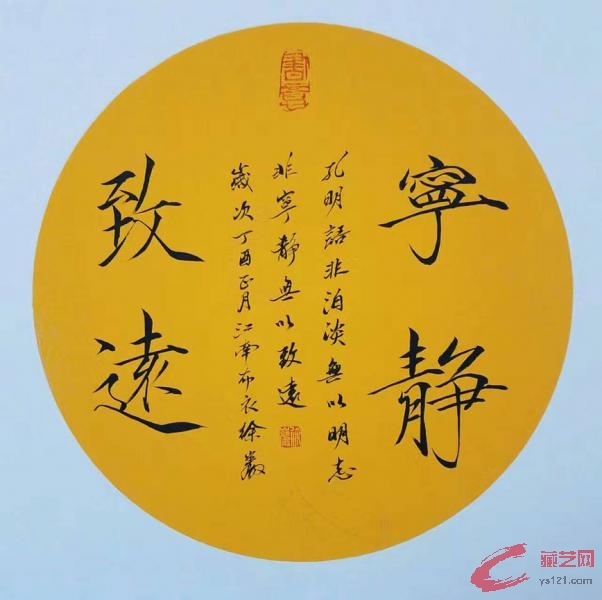 寧靜
致遠
孔明語非泊淡無以明志
非寧靜無以致遠
歲次丁酉正月江南布衣徐巖
藏艺网
ys121.com